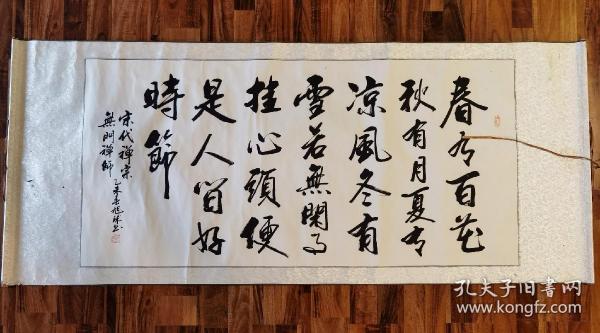 春有百花
秋有月夏有
凉風冬有
雪若無閑事
挂心頭便
是人間好
時節
宋代禅宗
無門禅師
乙未
孔夫子旧書网
www.kongfz.com